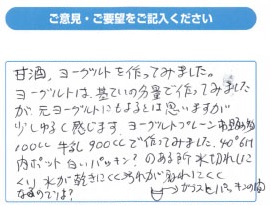 ご意見・ご要望をご記入ください
甘酒、ヨーグルトを作ってみました。
ヨーグルトは、基てい の分量で作ってみました
が 元ヨーグルトにもよるとは思いますが
少しゆるく感じます。ヨーグルトプレーン
100cc 牛乳 900ccで作ってみました。40°6H
内ポット 白いパッキン?のある所 水切れしに
くい 水が乾きにくく汚れが取れにくく
なるのでは? ガラスとパッキンの間